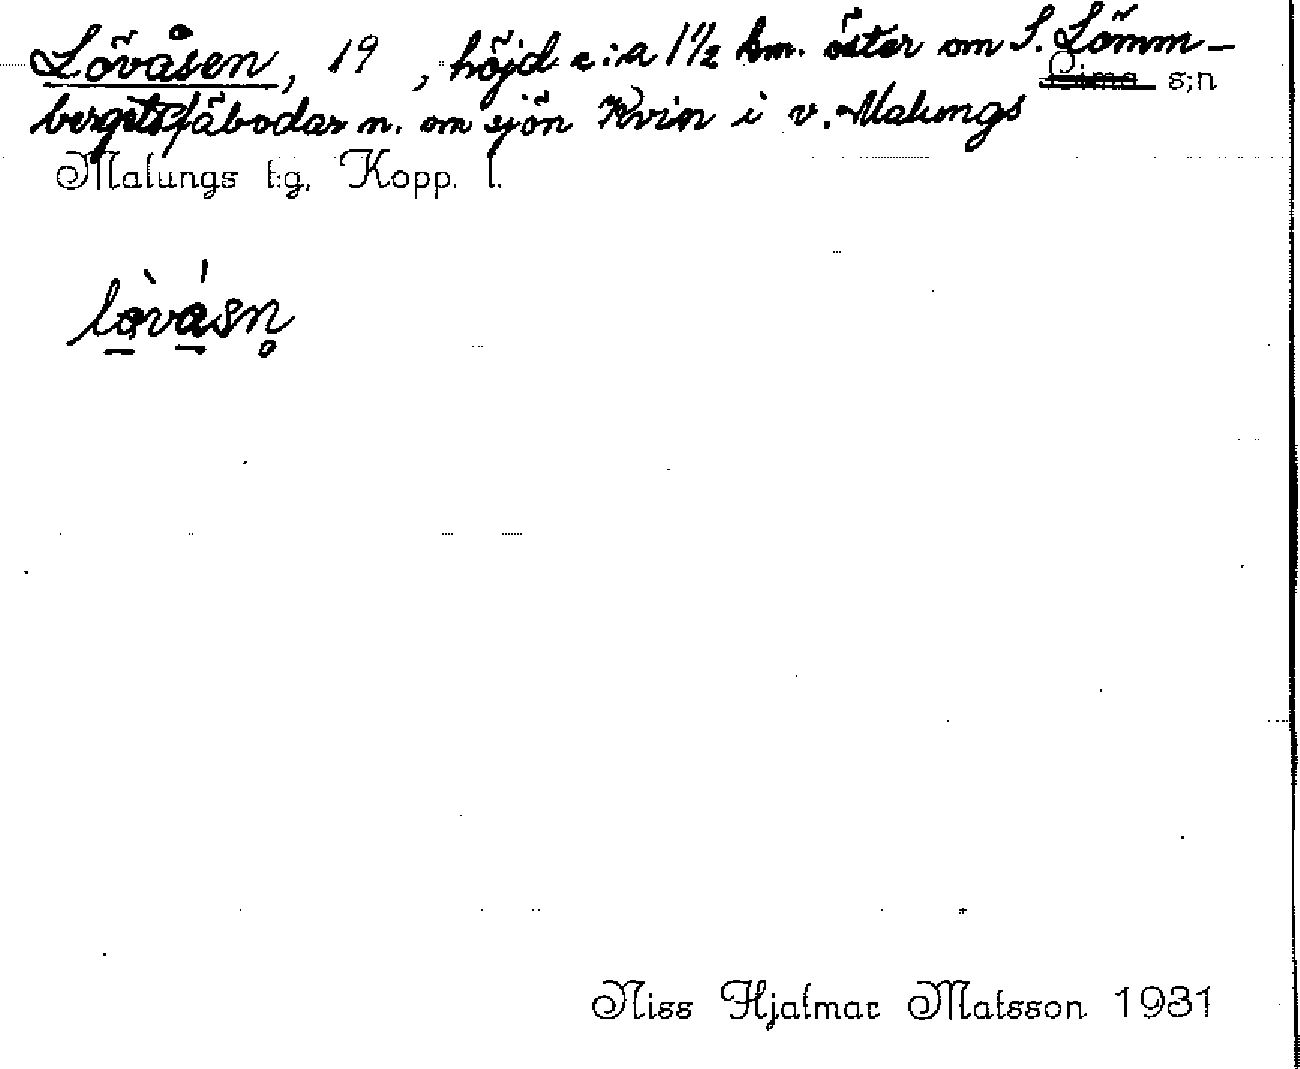 Lövåsen, 19 , höjd c:a 1 1/2 km. öster om S. Lömm-
bergets fäbodar n. om sjön Kvien i v. Malungs Lima s:n
Malungs t:g, Kopp. l.
lòvásn̥
Niss Hjalmar Matsson 1931